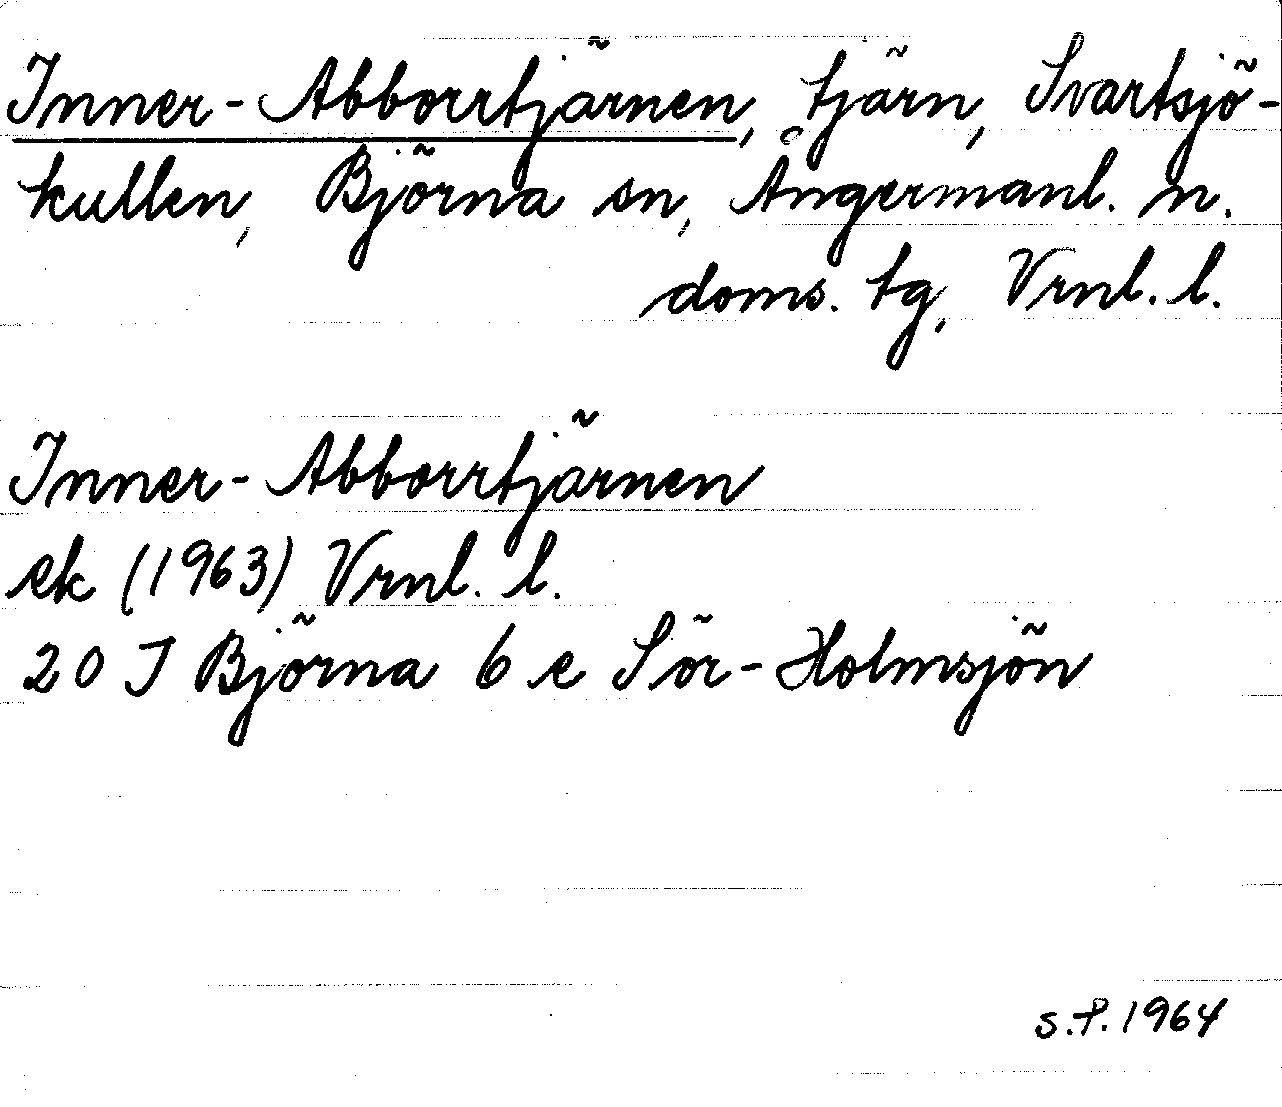 Inner-Abborrtjärnen, tjärn, Svartsjö-
kullen, Björna sn, Ångermanl. n.
doms. tg, Vrnl. l.
Inner-Abborrtjärnen
ek (1963) Vrnl. l.
20 J Björna 6 e Sör-Holmsjön
S.P. 1964